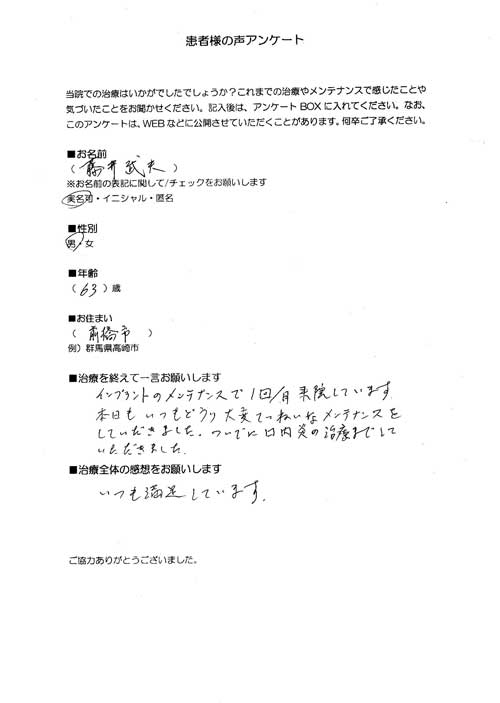 患者様の声アンケート
当院での治療はいかがでしたでしょうか？これまでの治療やメンテナンスで感じたことや
気づいたことをお聞かせください。記入後は、アンケート BOX に入れてください。なお、
このアンケートは、WEB などに公開させていただくことがあります。何卒ご了承ください。
■お名前
（藤井武夫）
※お名前の表記に関して/チェックをお願いします
実名可・イニシャル・匿名
■性別
男・女
■年齢
（63）歳
■お住まい
（前橋市）
例）群馬県高崎市
■治療を終えて一言お願いします
インプラントのメンテナンスで1回/月来院しています。
本日もいつもどうり大変ていねいなメンテナンスを
していただきました。ついでに口内炎の治療までして
いただきました。
■治療全体の感想をお願いします
いつも満足しています。
ご協力ありがとうございました。